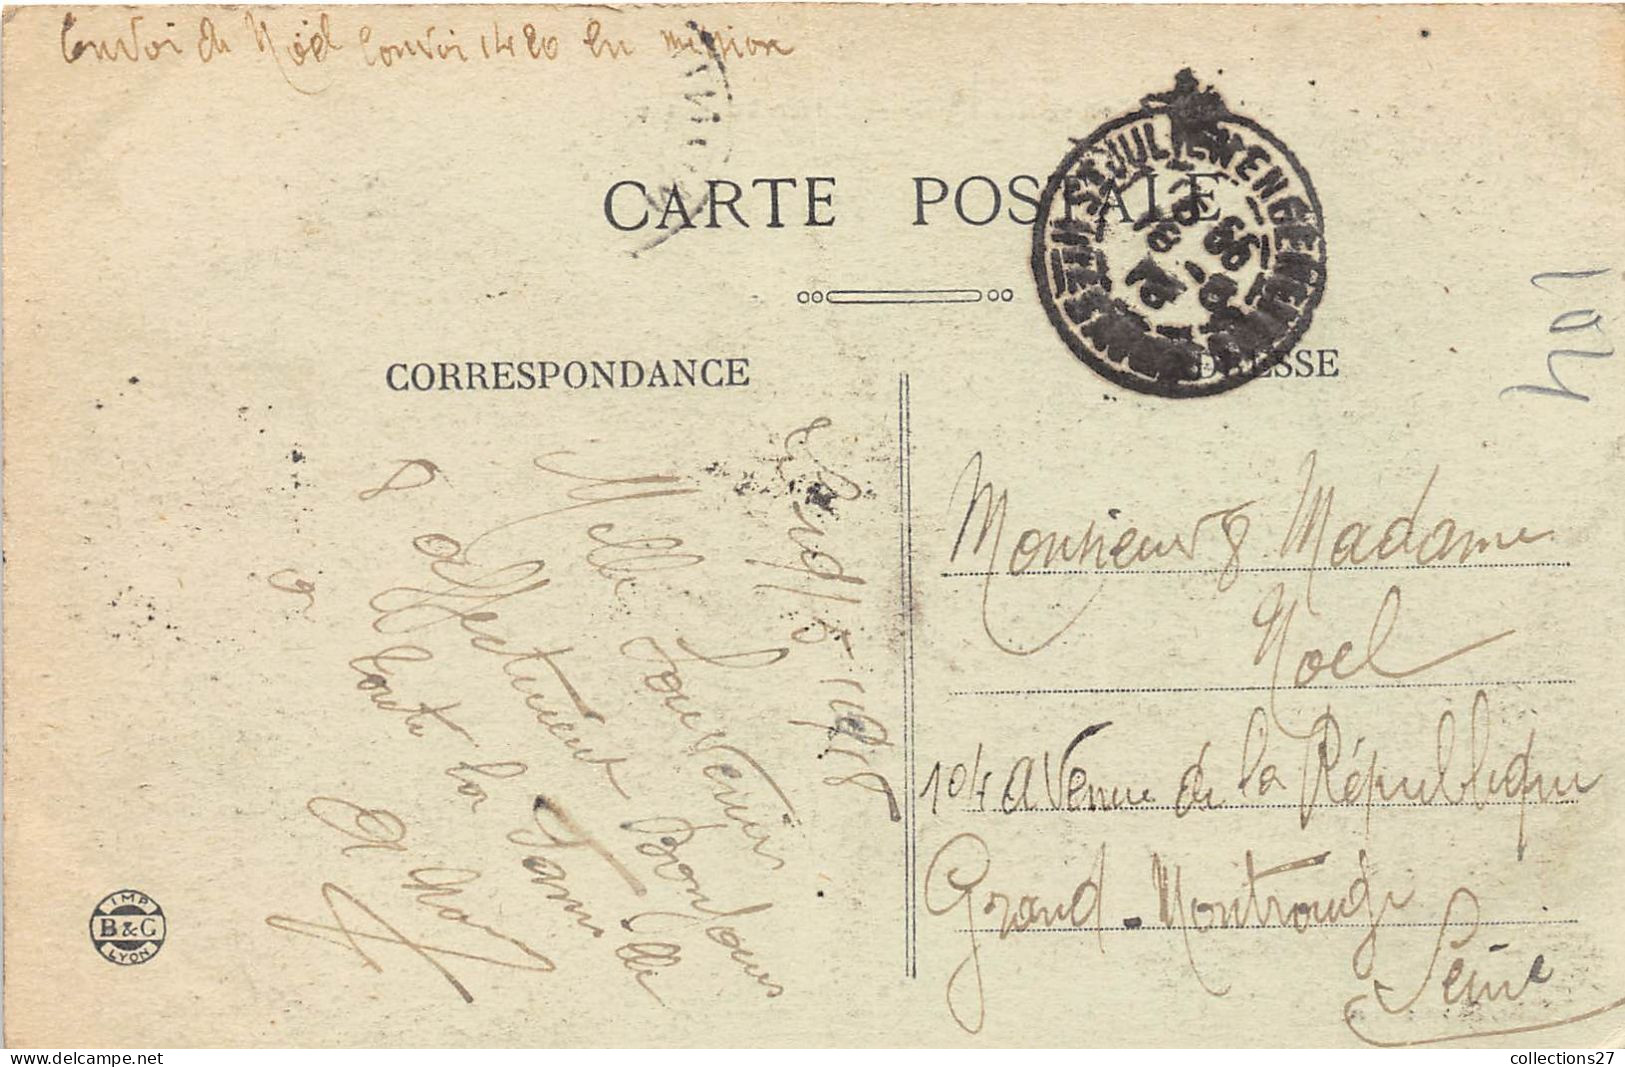 Convoi de Noël Convoi 1420 en mission
CARTE POSTALE
ST JULIEN EN GENEVOIS
HTE SAVOIE
CORRESPONDANCE
ADRESSE
104
/5/1918
Mille Souvenirs
& affectueux Bonjours
à toute la Famille
Noël
Monsieur & Madame
Noel
104 avenue de la République
Grand-Montrouge
Seine
IMP
B&C
LYON
collections27